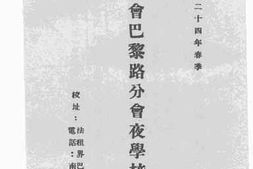 二十四年春季
會巴黎路分會夜學校
校址:法租界巴
電話:南